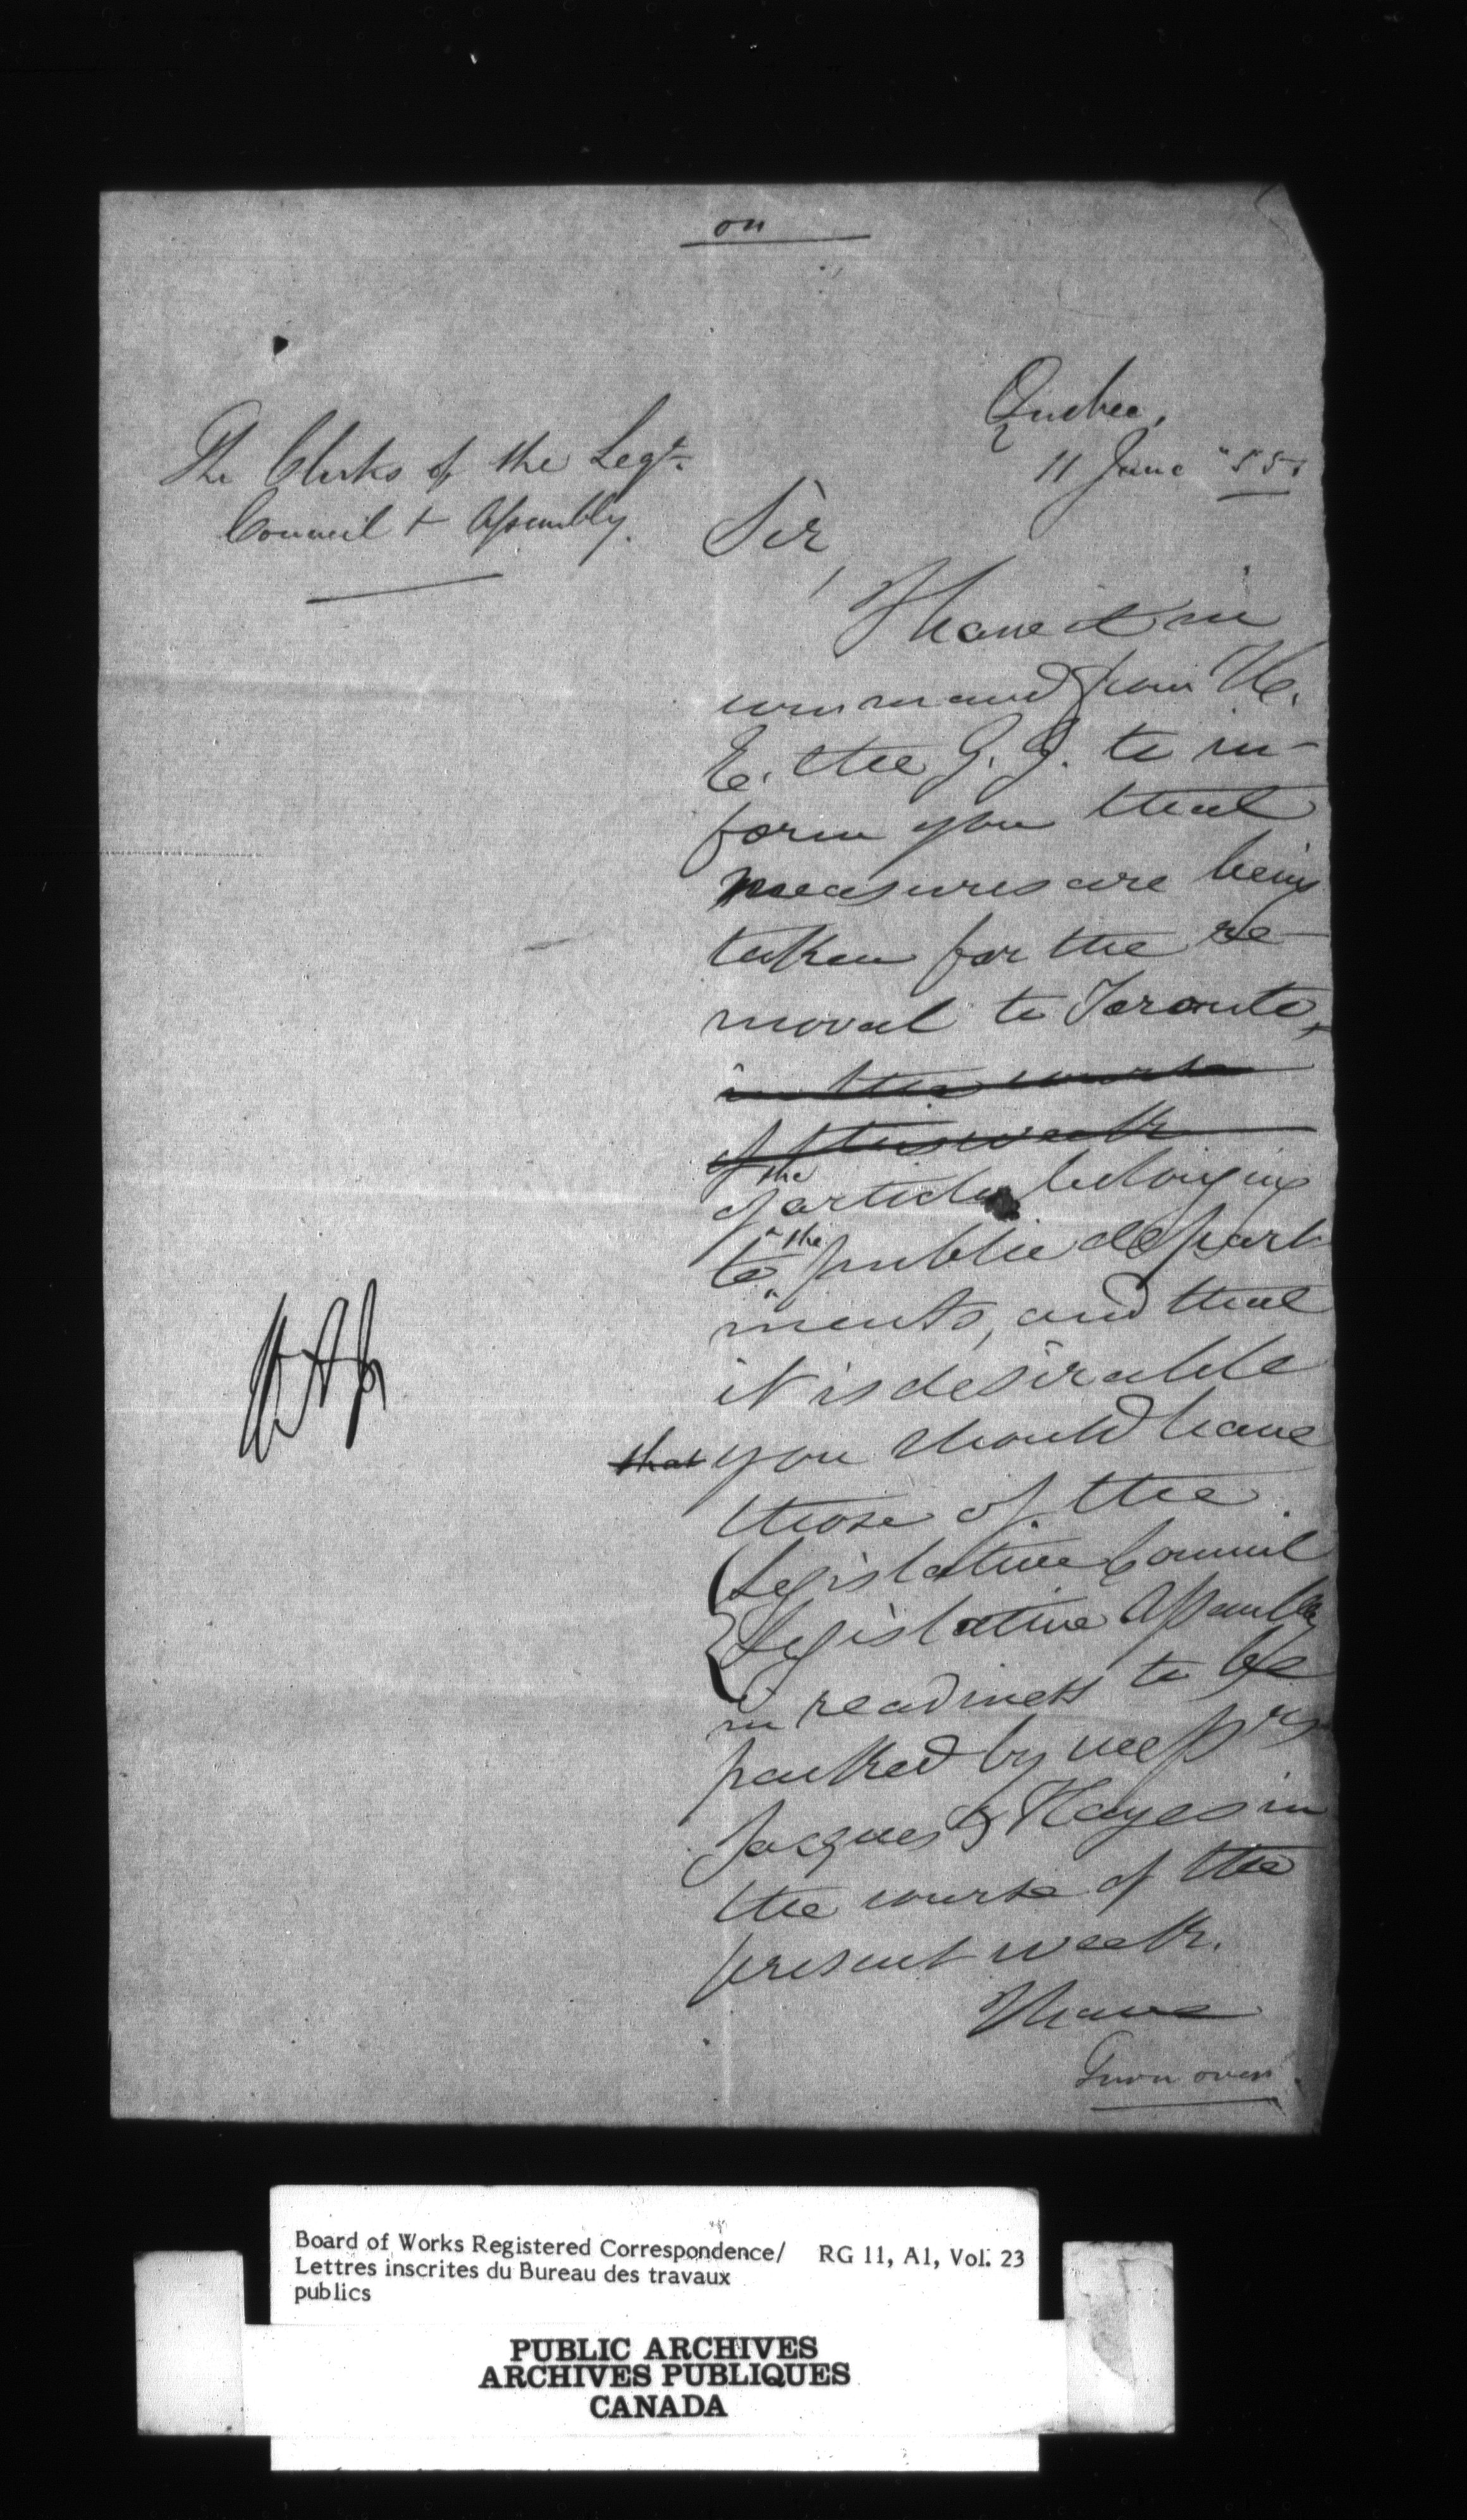 on
Quebec,
11 June "55.
The Clerks of the Legve.
Council & Assembly.
Sir,
I have it in
command from H.
E. the G. G. to in-
form you that
measures are being
taken for the re-
moval to Toronto,
in the course
of this week
of the articles belonging
to the public depart
ments, and that
it is desirable
that you should have
those of the
Legislative Council
Legislative Assembly
in readiness to be
packed by Messrs
Jacques & Hayes in
the course of the
present week.
I have
Turn over.
Board of Works Registered Correspondence/ RG 11, A1, Vol. 23
Lettres inscrites du Bureau des travaux
publics
PUBLIC ARCHIVES
ARCHIVES PUBLIQUES
CANADA